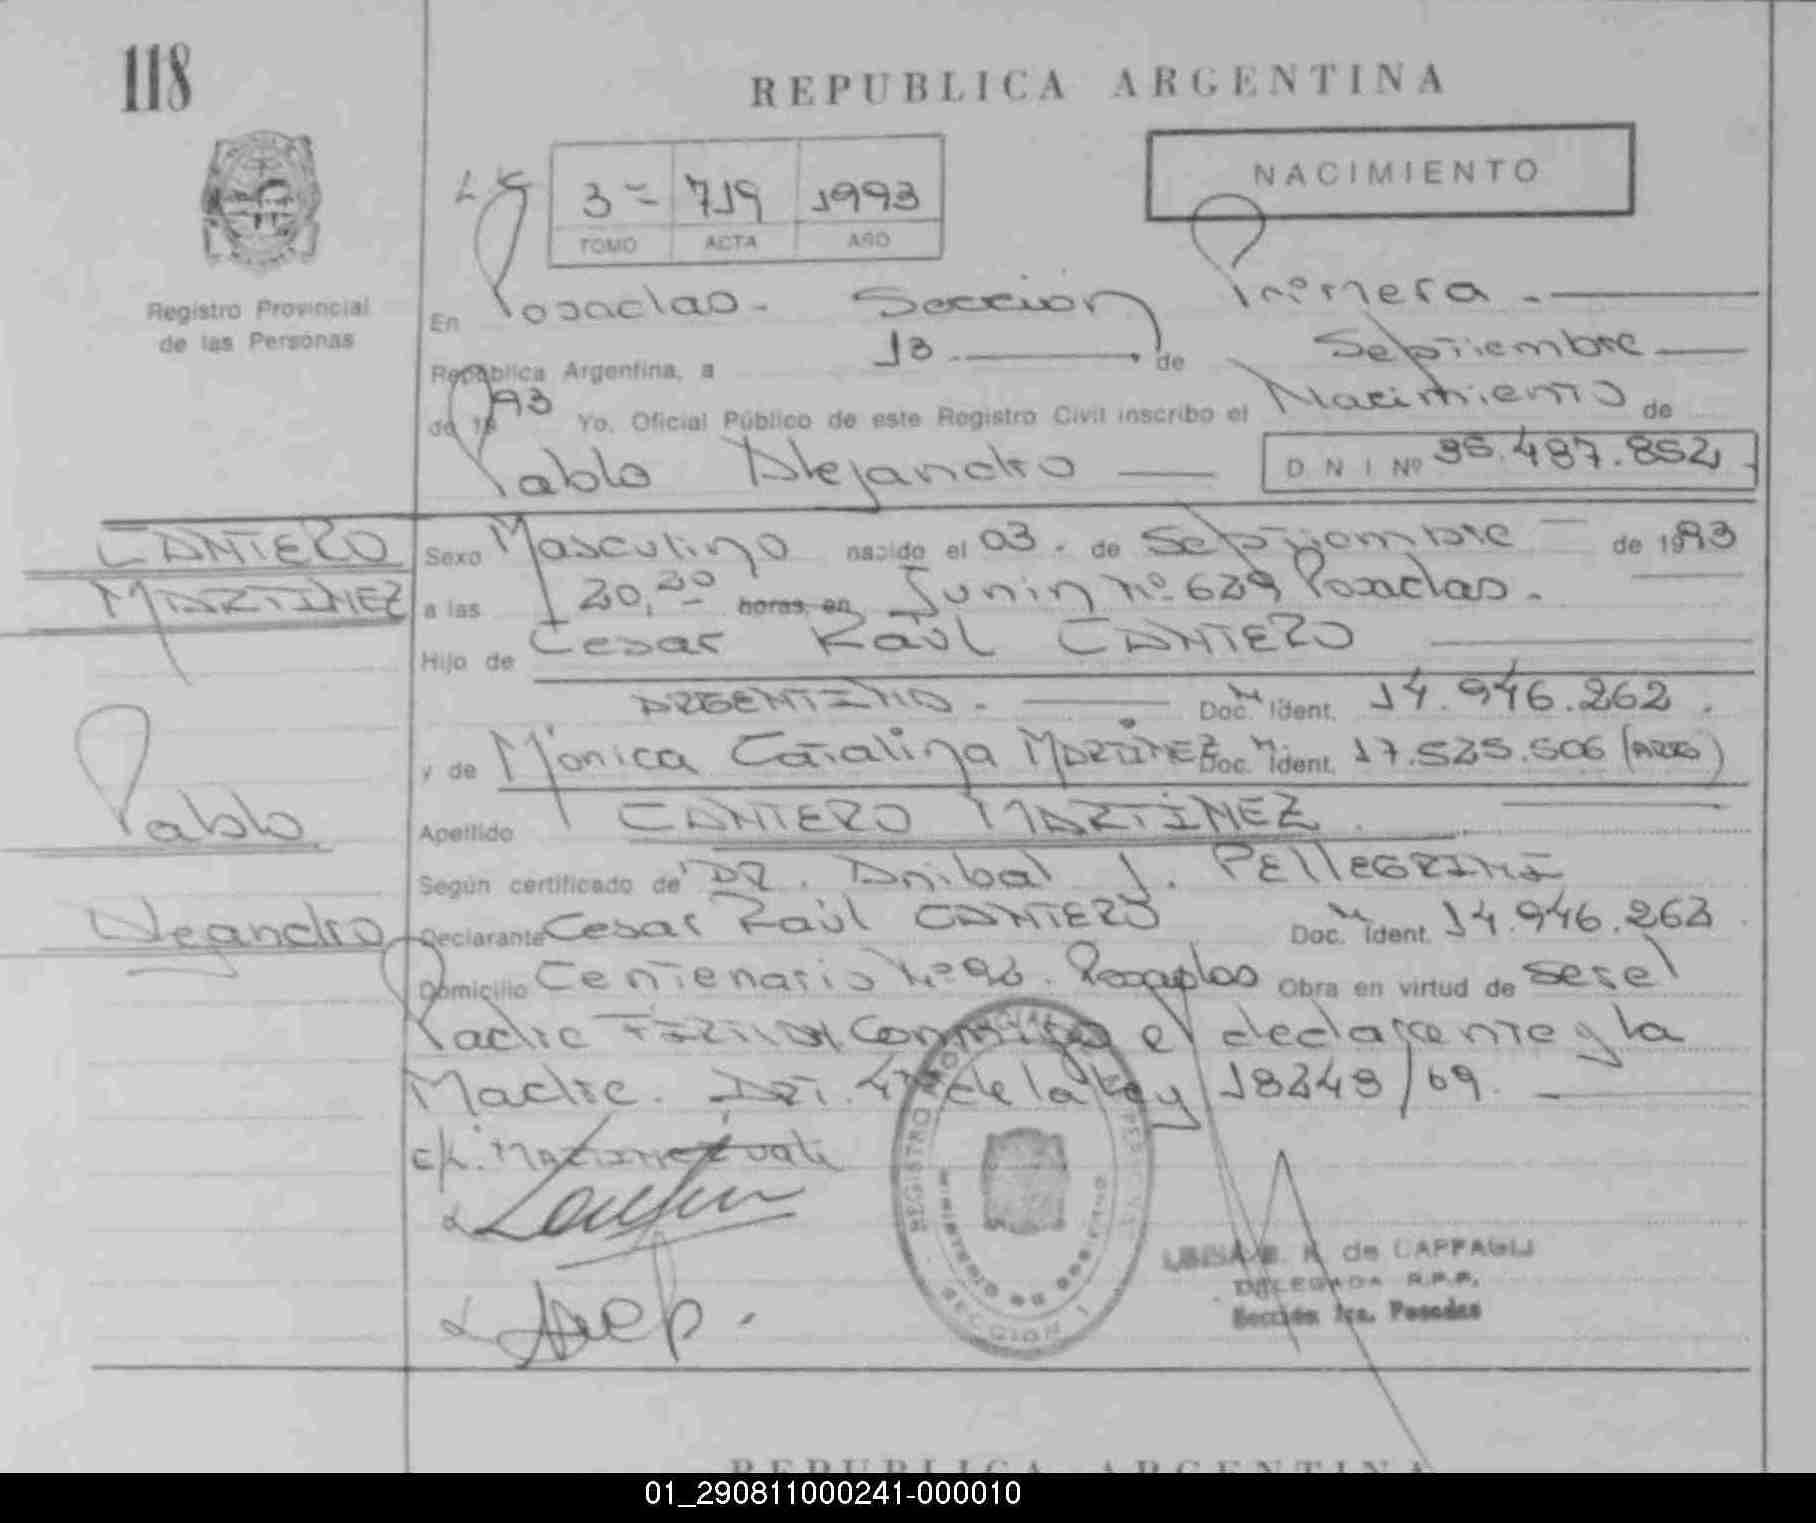 118
REPUBLICA ARGENTINA
NACIMIENTO
3= 719 1993
TOMO ACTA AÑO
Registro Provincial
de las Personas
En Posadas. Sección Primera.
República Argentina, a 13 de Septiembre
de 1993 Yo, Oficial Público de este Registro Civil inscribo el Nacimiento de
Pablo Alejandro D N I Nº .487.852
CANTERO
MARTINEZ
Pablo
Alejandro
Sexo Masculino nacido el 03. de Septiembre de 1993
a las 20,20 horas, en Junin Nº 639 Posadas.
Hijo de Cesar Raúl CANTERO
ARGENTINO. Doc. Ident. 14.946.262.
y de Mónica Catalina MARTINEZ Doc. Ident. 17.525.506 (ARG)
Apellido CANTERO MARTINEZ.
Según certificado de DR. Anibal J. PELLEGRINI
Declarante Cesar Raúl CANTERO Doc. Ident. 14.946.262
Domicilio Centenario Nº Posadas Obra en virtud de ser el
Padre Firman conmigo el declarante y la
Madre. Art. 4º de la Ley 18248/69.
E/L: MARTINEZ vale
REGISTRO PROVINCIAL DE LAS PERSONAS
MINISTERIO DE GOBIERNO
SECCION 1
de CAPPAGLI
DELEGADA R.P.P.
Sección 1ra. Posadas
REPUBLICA ARGENTINA
01_290811000241-000010